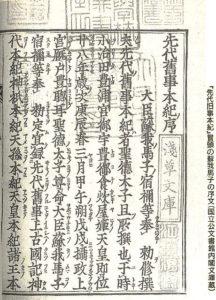 『先代旧事本紀』冒頭の蘇我馬子の序文(国立公文書館内閣文庫蔵)
先代舊事本紀序
大臣蘇我馬子宿禰等奉 勅修撰
夫先代舊事本紀者聖德太子且所撰也于時
小治田豊浦宮御宇豊御食炊屋姫天皇即位
廿八年歳次庚辰春三月甲午朔戊戌攝政上
宮厩戸豊聰耳聖德太子尊命大臣蘇我馬子
宿禰等奉 勅定宜録先代舊事上古國記神
代本紀神祇本紀天孫本紀天皇本紀諸王本
淺草文庫